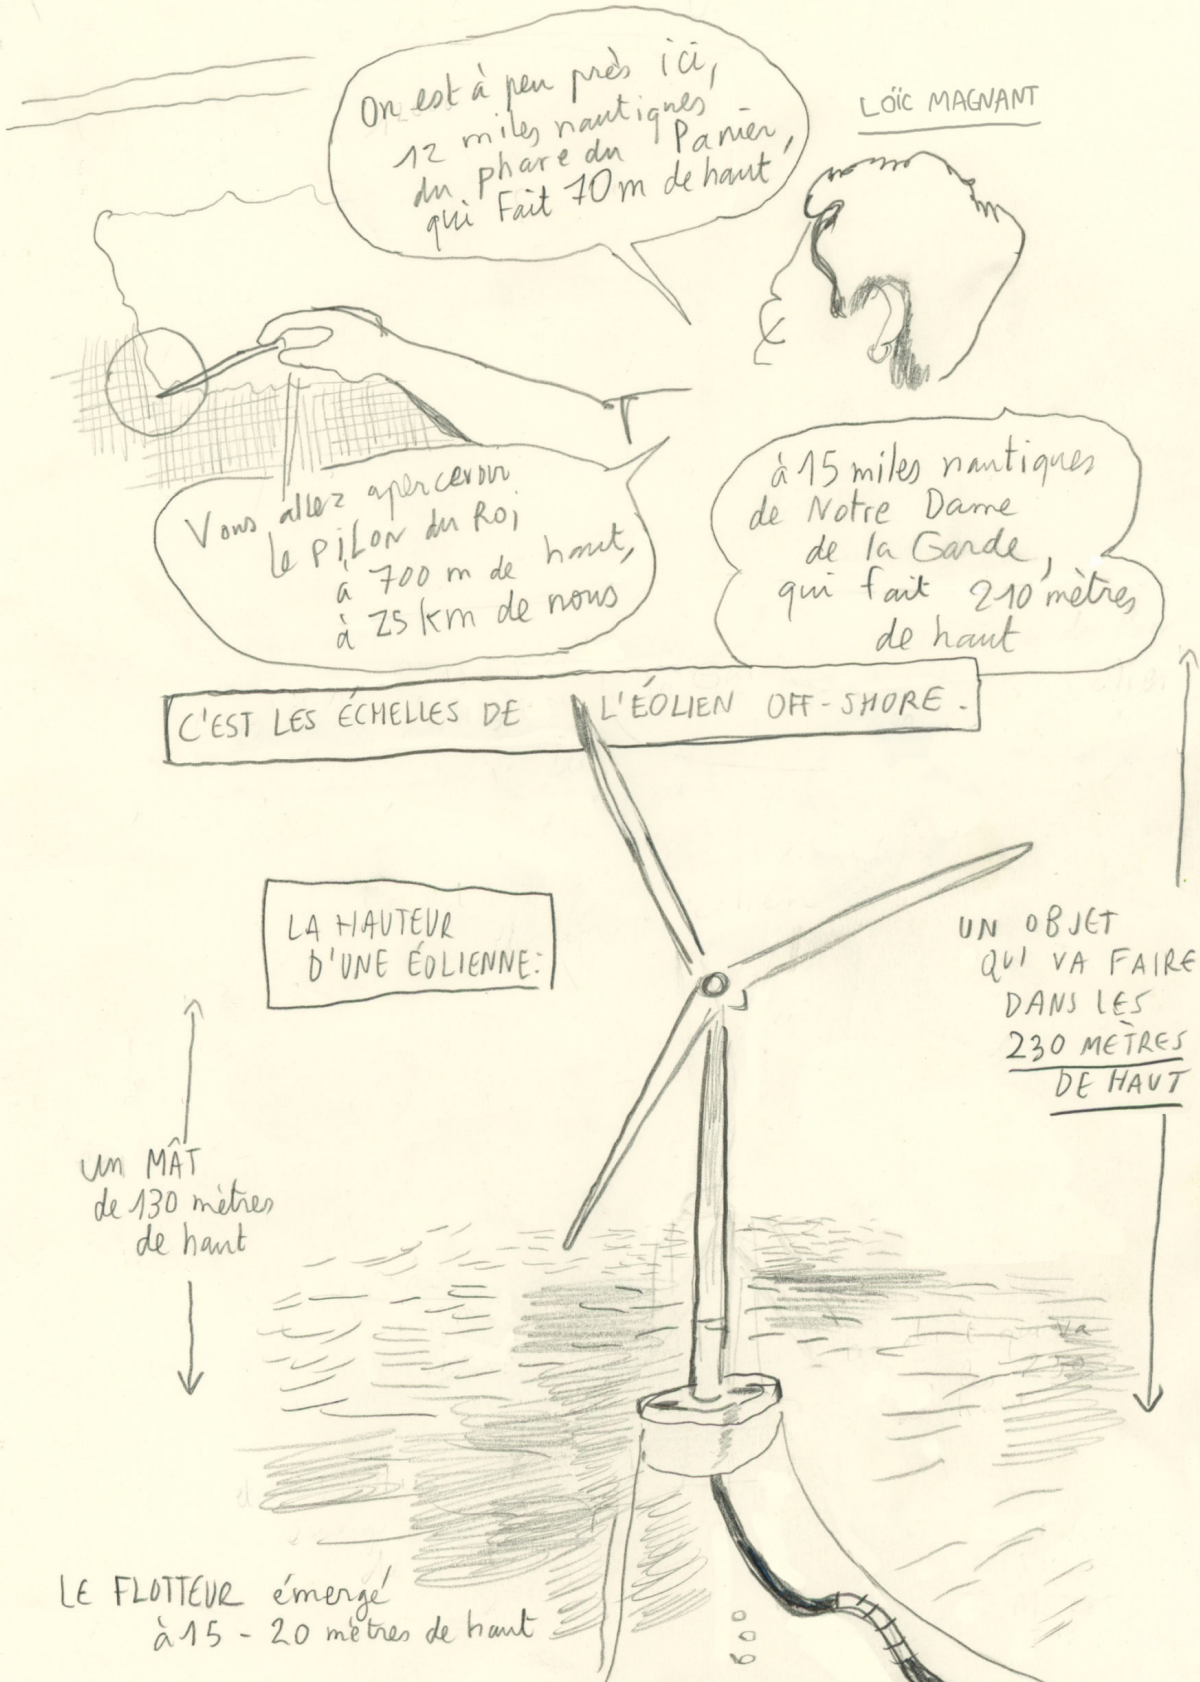 On est à peu près ici,
12 miles nautiques
du phare du Panier,
qui fait 70m de haut
LOÏC MAGNANT
Vous allez apercevoir
le PiLon du Roi
à 700 m de haut,
à 25 km de nous
à 15 miles nautiques
de Notre Dame
de la Garde,
qui fait 210 mètres
de haut
C'EST LES ÉCHELLES DE L'ÉOLIEN OFF-SHORE.
LA HAUTEUR
D'UNE ÉOLIENNE:
UN OBJET
QUI VA FAIRE
DANS LES
230 MÈTRES
DE HAUT
un MÂT
de 130 mètres
de haut
LE FLOTTEUR émergé
à 15 - 20 mètres de haut